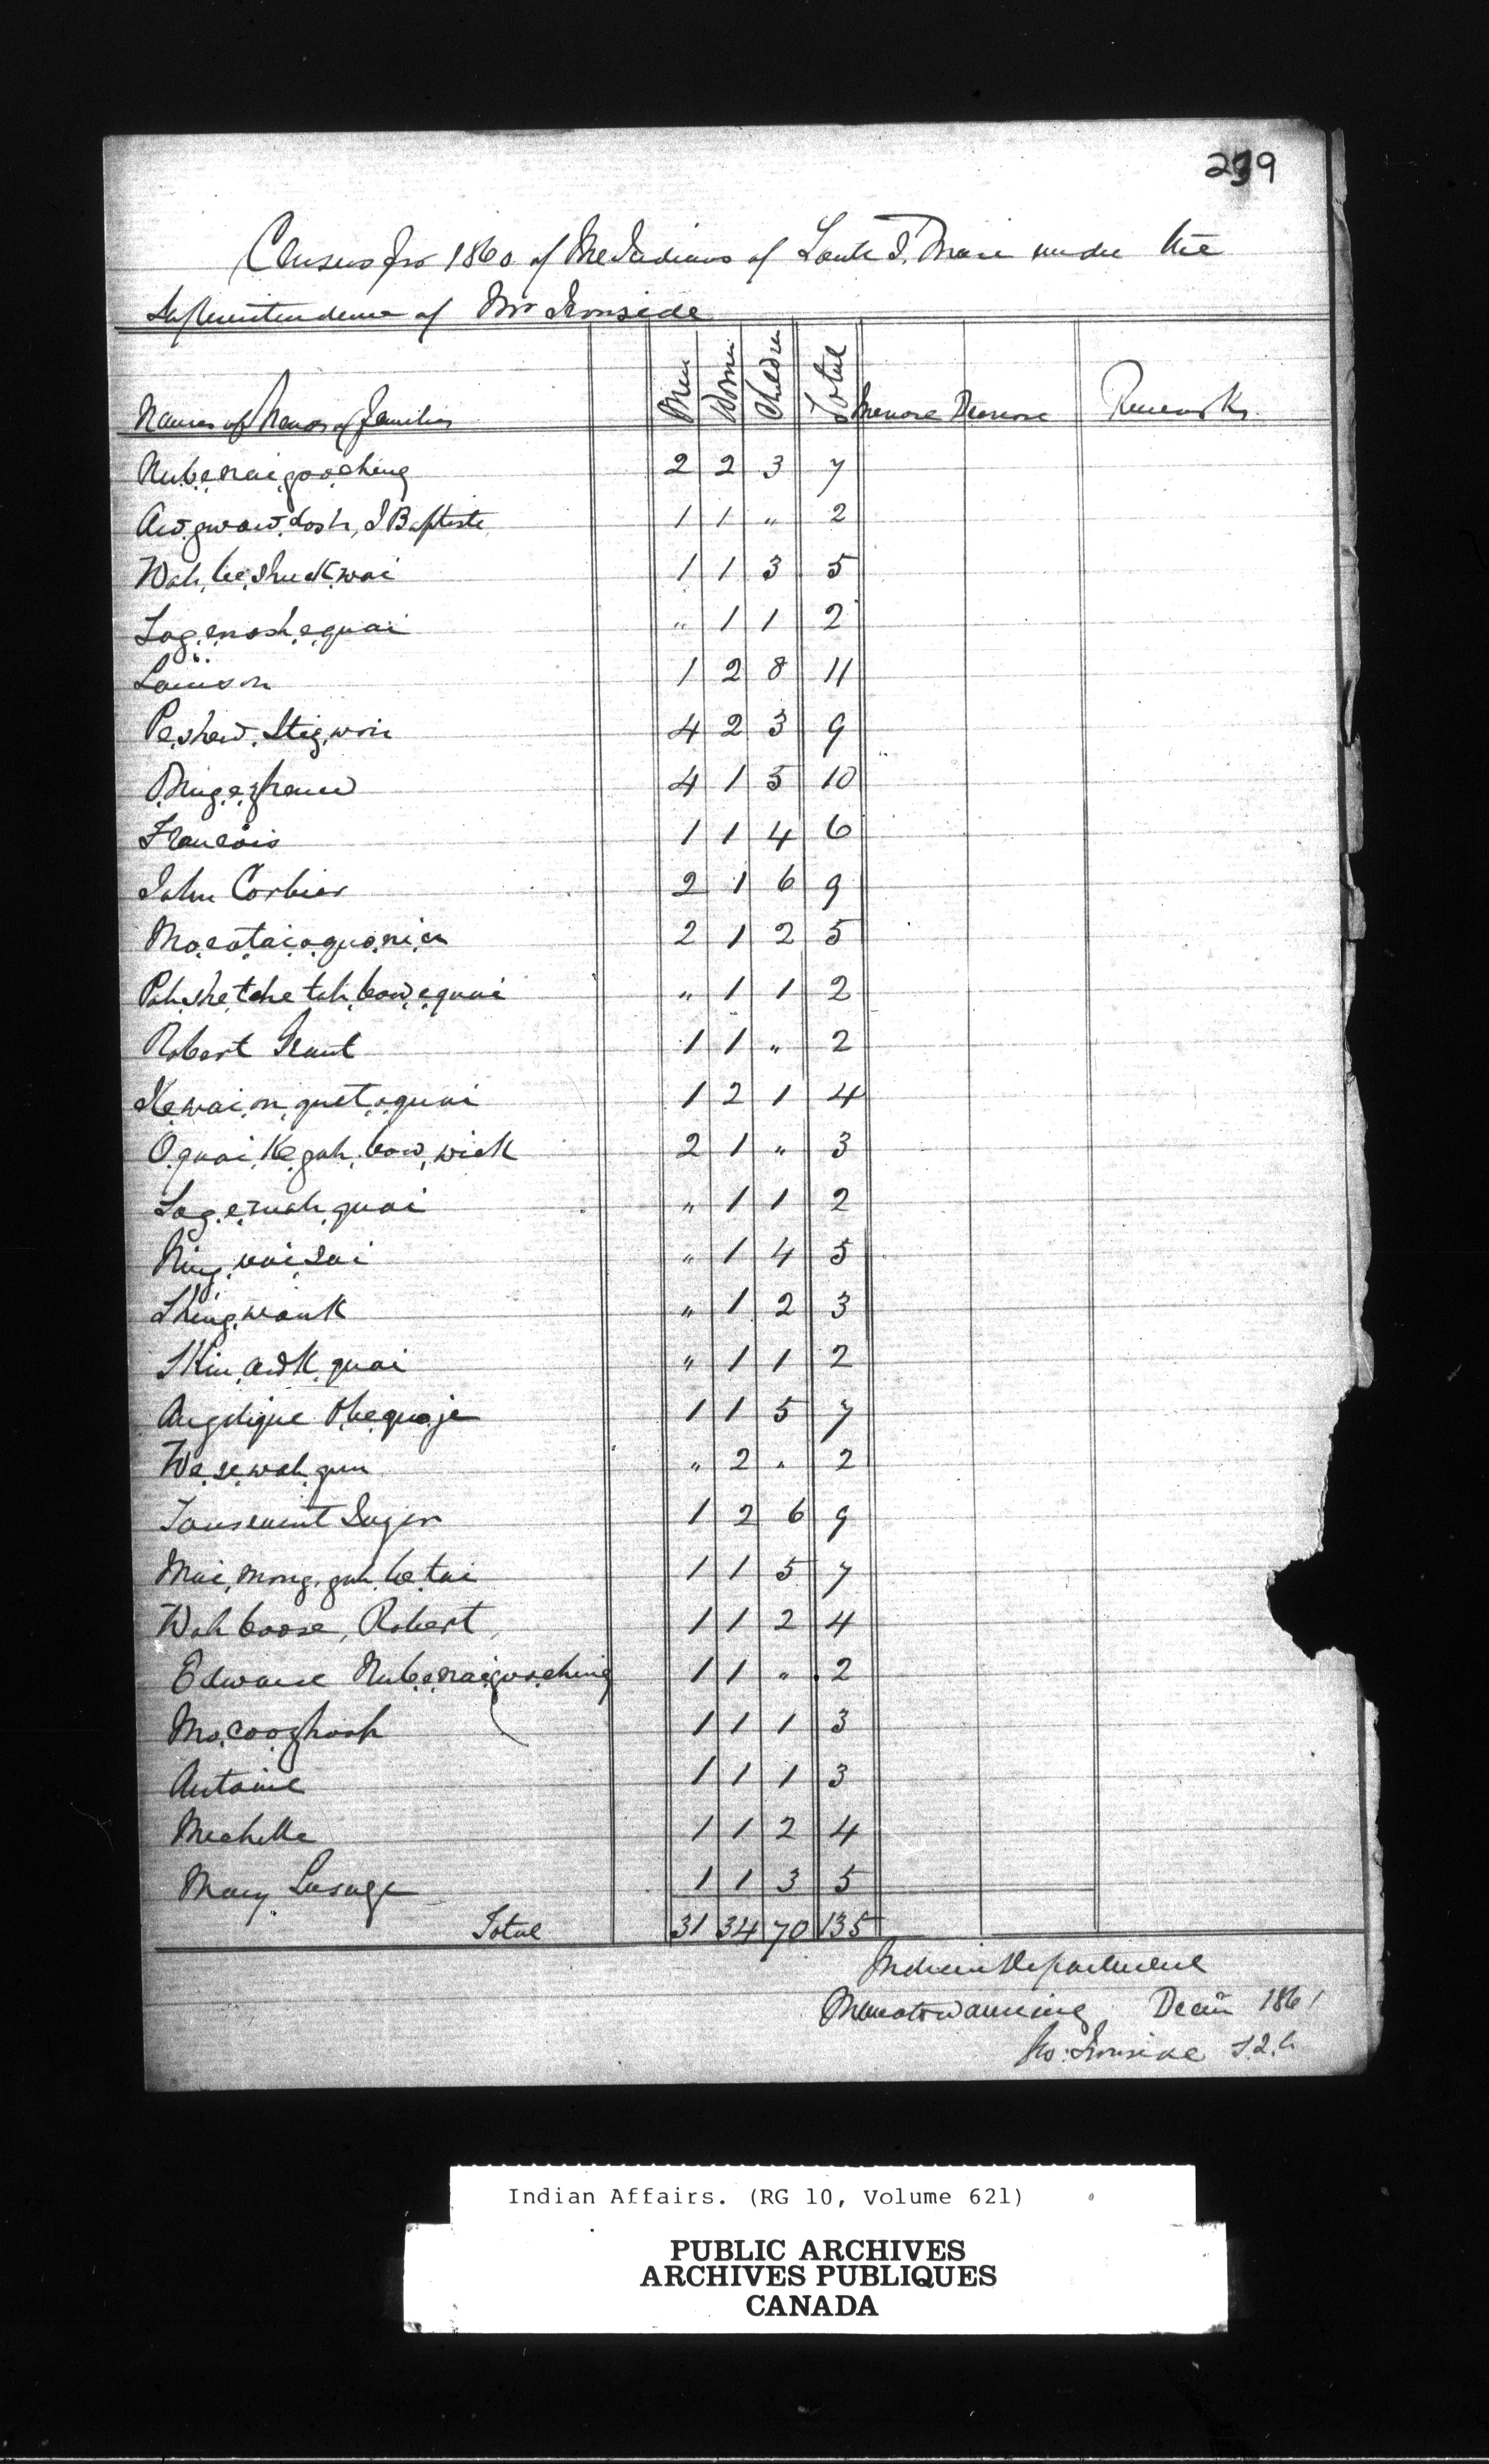 239
Census for 1860 of the Indians of Sault S. Marie under the
Superintendence of Mr Ironside
Names of Heads of Families Men Women Children Total Increase Decrease Remarks
Nu.be.nai.goo.ching 2 2 3 7
Aw.gwaw.dosh, J Baptiste 1 1 " 2
Wah.be.shuck.wai 1 1 3 5
Sag.e.nosh.e.quai " 1 1 2
Louison 1 2 8 11
Pe.shew.Stig.won 4 2 3 9
4 1 5 10
Francois 1 1 4 6
John Corbier 2 1 6 9
Ma.ca.tai.o.quo.ni.a 2 1 2 5
Pah.she.tche.tah.bow.e.quai " 1 1 2
Robert Grant 1 1 " 2
Ke.wai.on.quet.o.quai 1 2 1 4
O.quai.ke.gah.bow.wick 2 1 " 3
Sag.e.mah.quai " 1 1 2
Ning.wai.sai " 1 4 5
Shing.wauk " 1 2 3
Skin.awk.quai " 1 1 2
Angelique 1 1 5 7
We.se.wah.gun " 2 " 2
Tousaint 1 2 6 9
Mai.mong.gah.be.tai 1 1 5 7
Wah boose, Robert 1 1 2 4
Edward Nu.be.nai.goo.ching 1 1 " 2
Ma.coo.zhash 1 1 1 3
Antoine 1 1 1 3
Mechelle 1 1 2 4
Mary Lesage 1 1 3 5
Total 31 34 70 135
Indian Department
Manatowaning Decr 1861
Geo: Ironside
Indian Affairs. (RG 10, Volume 621)
PUBLIC ARCHIVES
ARCHIVES PUBLIQUES
CANADA